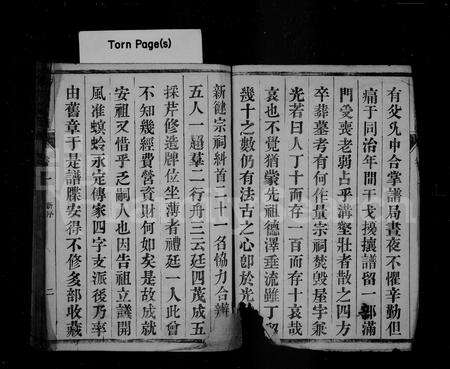 Torn Page(s)
有父兄申合掌譜局晝夜不懼辛勤但
痛于同治年間干戈擾攘譜留一部滿
門受喪老弱占乎溝壑壯者散之四方
卒葬墓者有何作量宗祠焚毀屋宇兼
光若曰人丁十而存一百而存十哀哉
哀也不覺猶蒙先祖德澤垂流雖丁
幾十之數仍有法古之心卽於光
新健宗祠糾首二十一名協力合辨
五人一趨羣二行舟三云廷四茂成五
採芹修造牌位坐薄者禮廷一人此會
不知幾經費營資財何如矣是故成就
安祖又惜乎乏嗣人也因告祖立議開
風准螟蛉永定傳家四字支派後乃率
由舊章于是譜牒安得不修多部收藏
新序
二